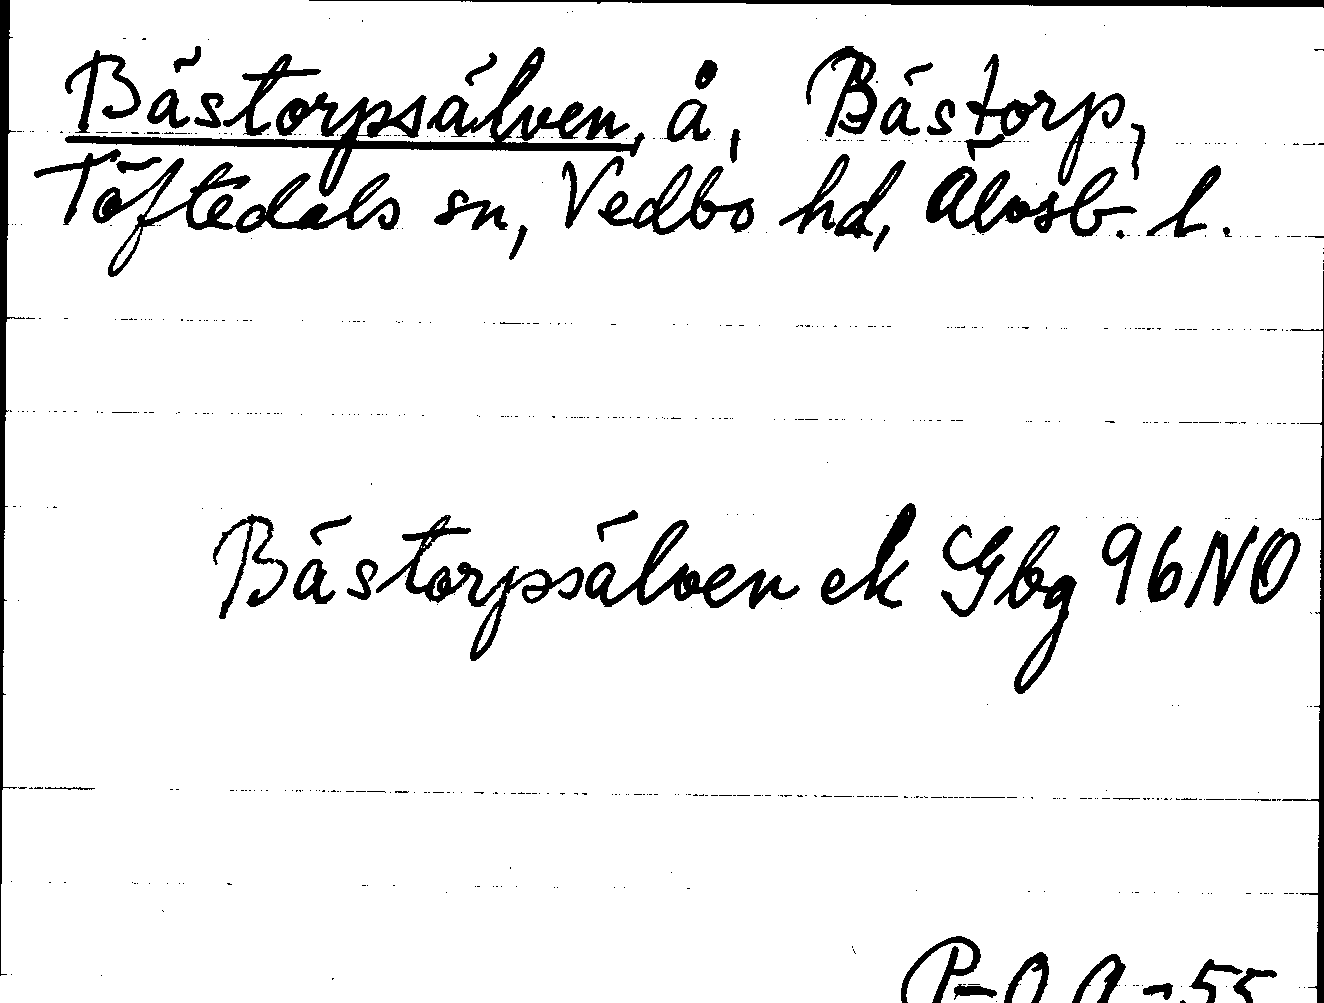 Bästorpsälven, å, Bästorp,
Töftedals sn, Vedbo hd, Älvsb. l.
Bästorpsälven ek Gbg 96NO